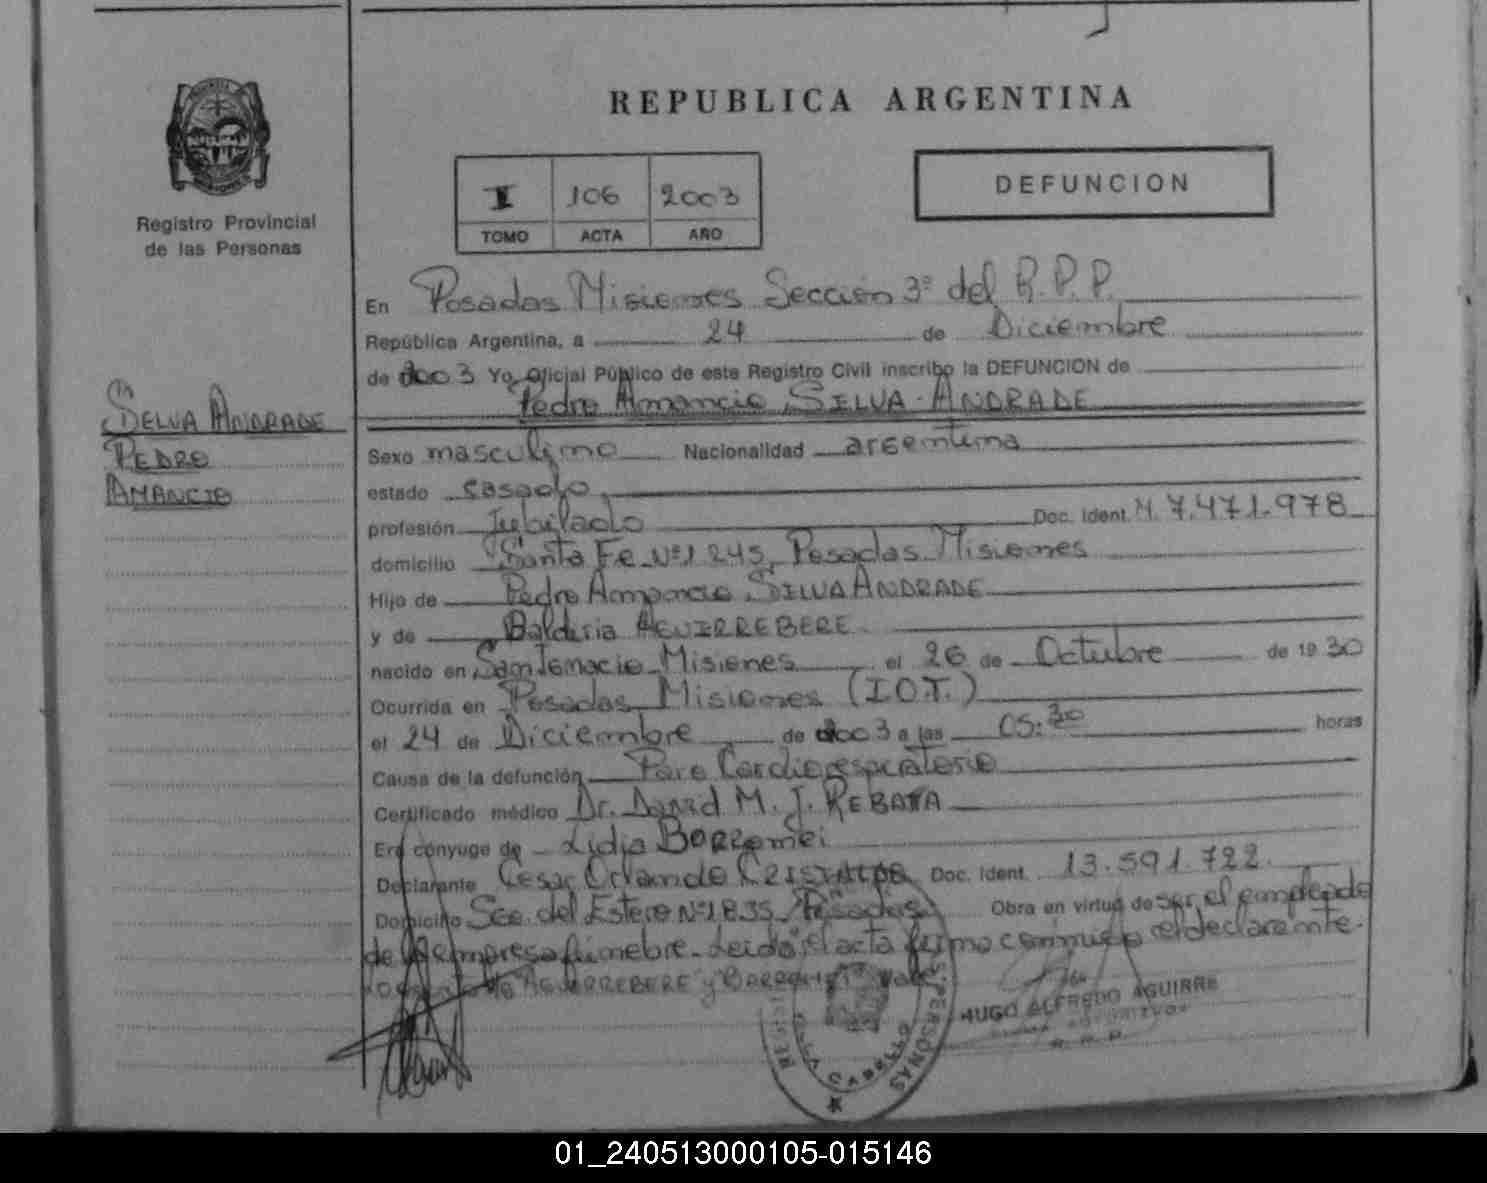 REPUBLICA ARGENTINA
Registro Provincial
de las Personas
I 106 2003
TOMO ACTA AÑO
DEFUNCION
SELVA ANDRADE
PEDRO
AMANCIO
En Posadas Misiones Sección 3ª del R.P.P.
República Argentina, a 24 de Diciembre
de 2003 Yo, Oficial Público de este Registro Civil inscribo la DEFUNCION de
Pedro Amancio SILVA ANDRADE
Sexo masculino Nacionalidad argentina
estado casado
profesión Jubilado Doc. Ident. M. 7.471.978
domicilio Santa Fe Nº1245, Posadas Misiones
Hijo de Pedro Amancio SILVA ANDRADE
y de Baldiria AGUIRREBERE
nacido en San Ignacio Misiones el 26 de Octubre de 1930
Ocurrida en Posadas Misiones (I.O.T.)
el 24 de Diciembre de 2003 a las 05:30 horas
Causa de la defunción Paro Cardiorespiratorio
Certificado médico Dr. David M. J. REBATA
Era conyuge de Lidia BORROMEI
Declarante Cesar Orlando Doc. Ident. 13.591.722.
Domicilio Sgo. del Estero Nº1835 Posadas Obra en virtud de ser el empleado
de la empresa fúnebre. Leída el acta firma conmigo el declarante.
AGUIRREBERE y BORROMEI
VILLA CABELLO
PERSONAS
HUGO ALFREDO AGUIRRE
01_240513000105-015146